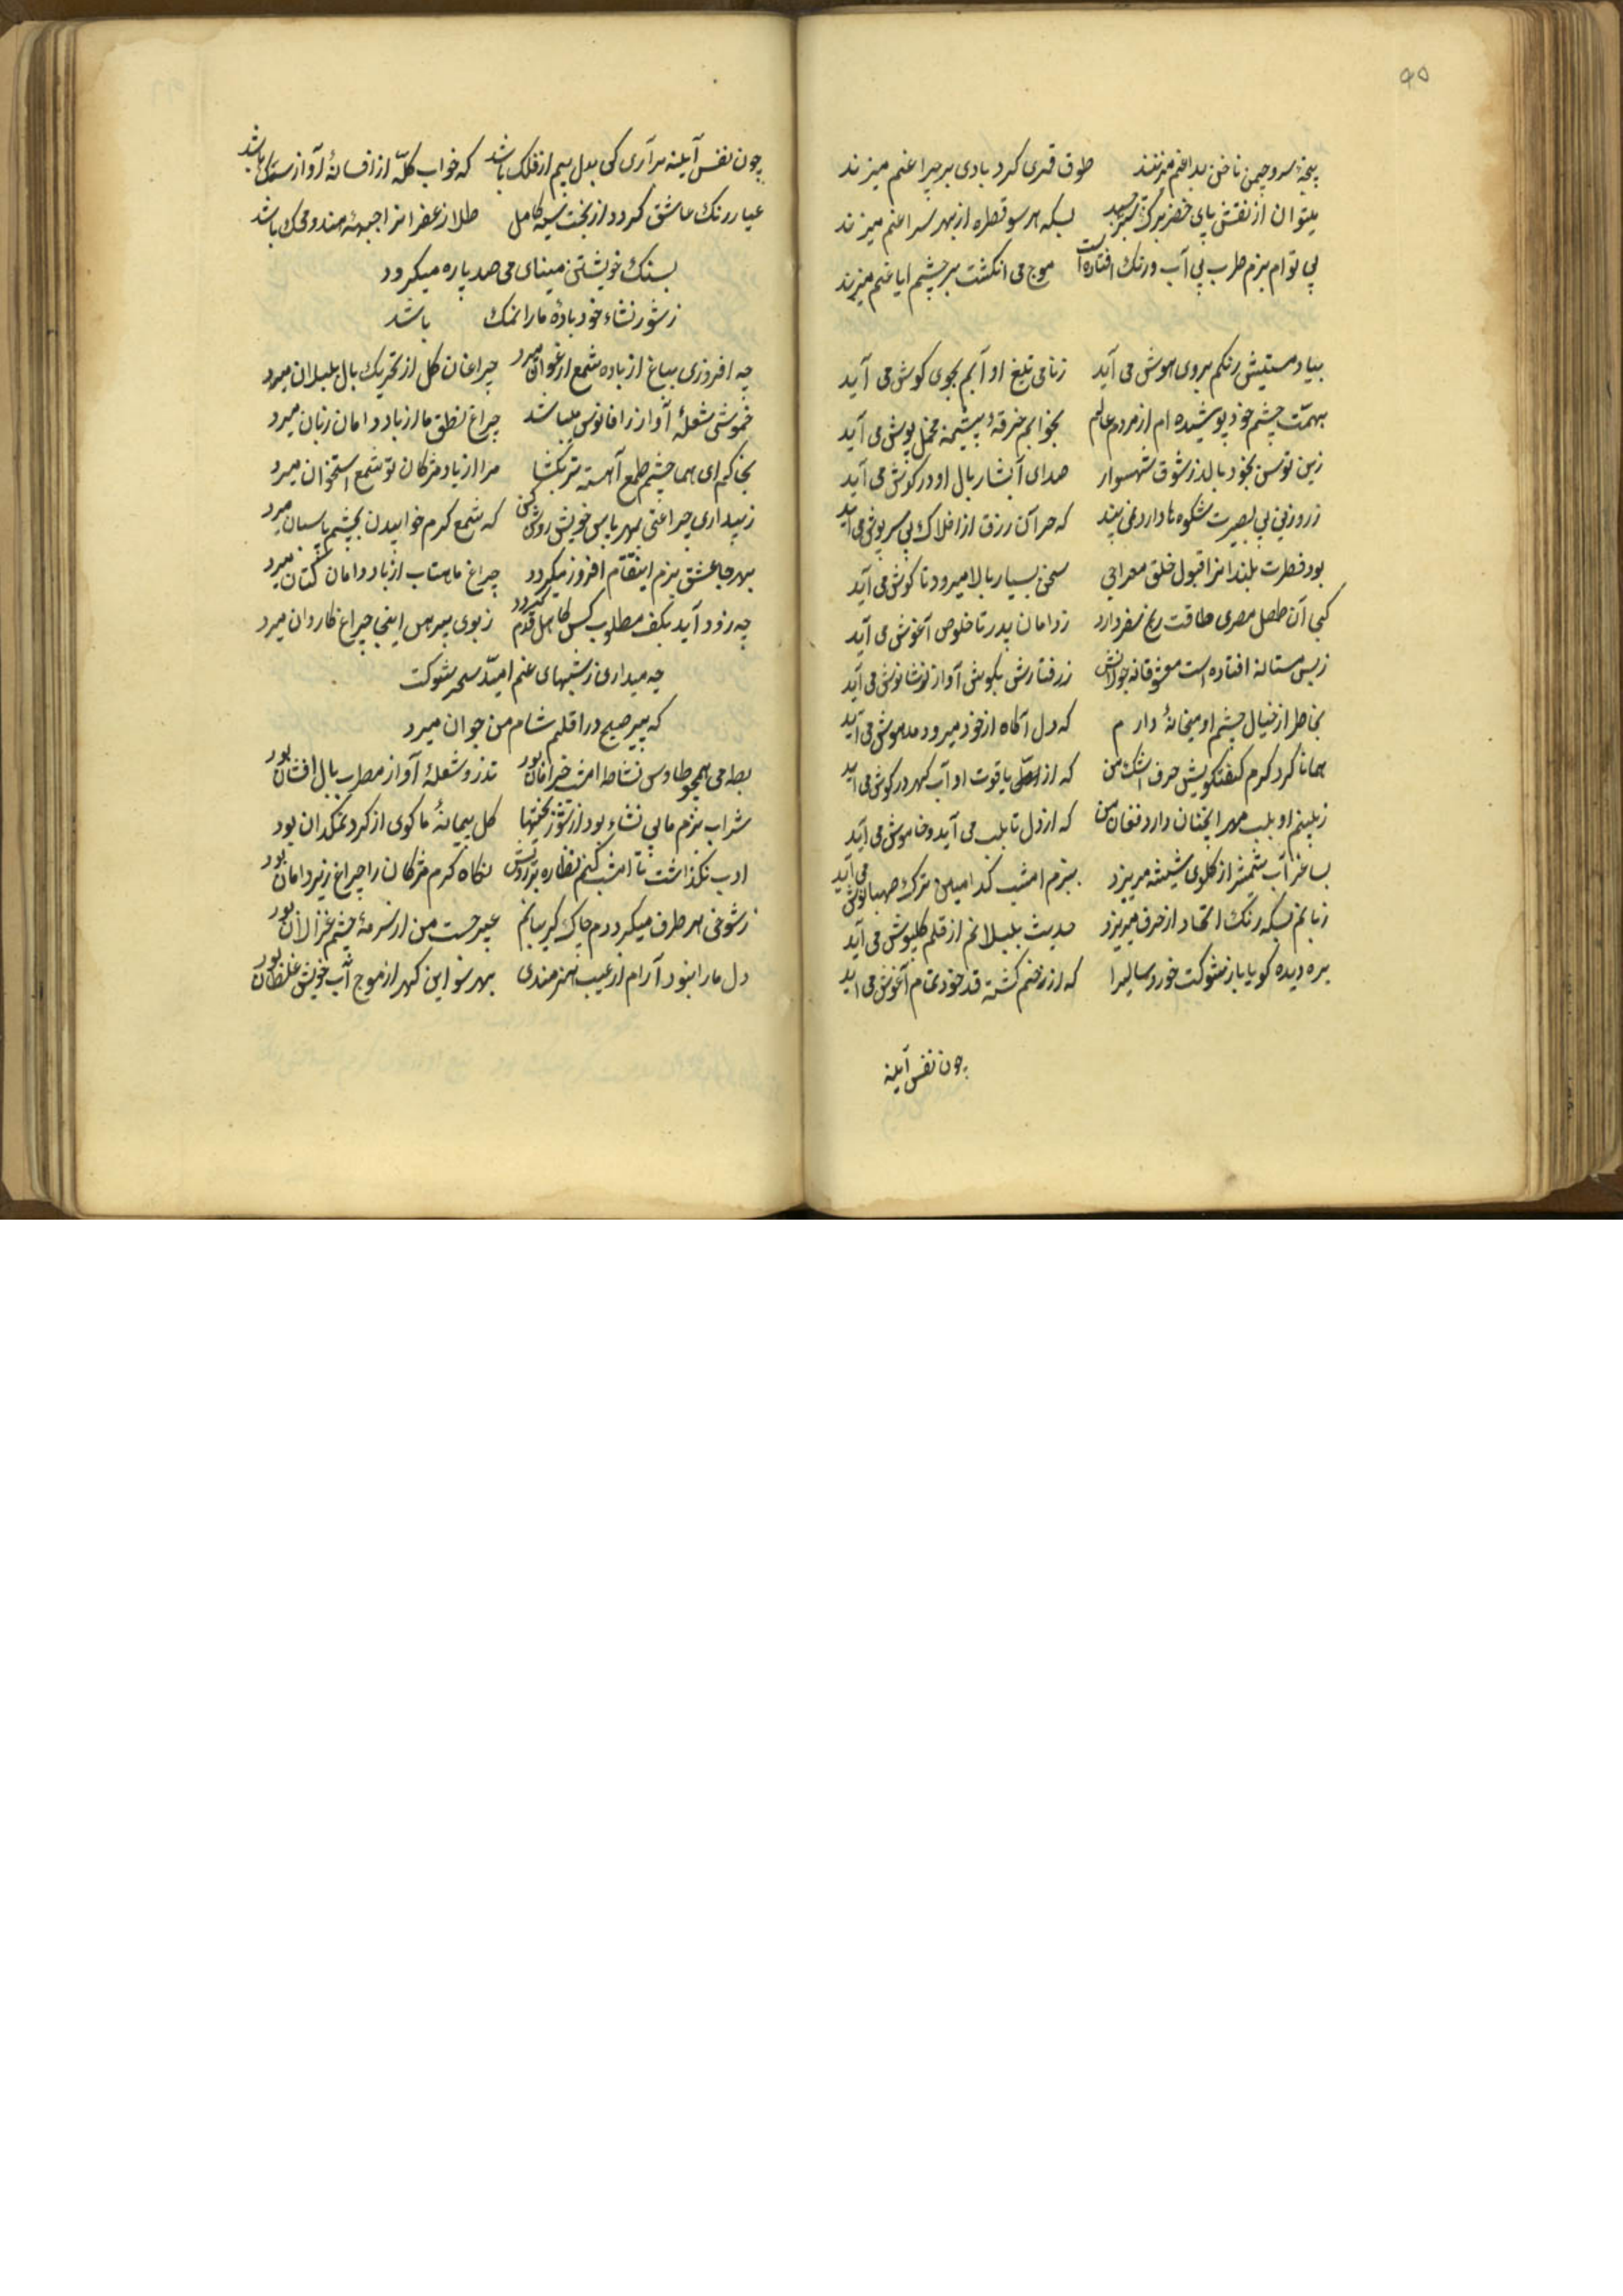 ۹۵
پنجهٔ سرو چمن ناخن بداغم میزند طوق قمری کرد بادی بر چراغم میزند
میتوان از نقش پای خضر برک سبز چید بسکه هر سو قطره از بهر سراغم میزند
بی توام بزم طرب بی آب و رنک افتاده است موج می انکشت بر چشم ایاغم میزند
بیاد مستیش رنکم بروی هوش می آید ز نامی تیغ او آبم بجوی کوش می آید
بهمت چشم خود پوشیده ام از مردم عالم بخوابم خرقهٔ پشمینه مخمل پوش می آید
زین توسن بخود بالد ز شوق شهسوار صدای آبشار بال او در کوش می آید
ز روزنی بی بصیرت شکوه ها دارد نمی بیند که حرآن رزق از افلاک بی سرپوش می آید
بود فطرت بلندانرا قبول خلق معراجی سخن بسیار بالا میرود تا کوش می آید
کی آن طفل مصری طاقت رنج سفر دارد ز دامان پدر تا خلوص آغوش می آید
ز بس مستانه افتاده است معشوقانه جولانش ز رفتارش بکوش آواز نوشانوش می آید
بخاطر از خیال چشم او میخانهٔ دارم که دل آکاه از خود میرود مدهوش می آید
همانا کرد کرم کفتکویش حرف اشک من که از لعل یاقوت او آب کهر در کوش می آید
ز بیم او بلب مهر آنچنان دارد فغان من که از دل تا بلب می آید و خاموش می آید
بساغر آب شمشیر از کلوی شیشه میریزد ببزم امشب کدامین ترک صهبانوش می آید
زبانم بسکه رنک اتحاد از حرف میریزد حدیث بلبلانم از قلم کلپوش می آید
بره دیده کویا باز شوکت خورد سالیرا که از زخم کشته قد خود تمام آغوش می آید
چون نفس آینه
چون نفس آینه برآری کی بدل بیم از فلک باشد که خواب کله از افسانهٔ آواز سک باشد
عیار رنک عاشق کردد از بخت سیه کامل طلا از عفرانرا جبههٔ هندو محک باشد
بسنک خویشتن مینای می صد پاره میکردد
ز شور نشاء خود بادهٔ ما را نمک باشد
چه افروزی بباغ از باده شمع ارغوان میرد چراغان کل از تحریک بال بلبلان میرد
خموشی شعلهٔ آواز را فانوس میباشد چراغ نطق ما از باد دامان زبان میرد
بخاکم ای هما چشم طمع آهسته تر بکشا مرا از باد مژکان تو شمع استخوان میرد
ز بیداری چراغی بهر پاس خویش روشن کن که شمع کرم خوابیدن بچشم پاسبان میرد
بهر جا عشق بزم انتقام افروز میکردد چراغ ماهتاب از باد دامان کتان میرد
چه زود آید بکف مطلوب کس کاهل قدم کردد ز بوی پیرهن اینجا چراغ کاروان میرد
چه میداری ز شبهای غم امید سحر شوکت
که پیر صبح در اقلیم شام من جوان میرد
بط می همچو طاوس نشاط امشب خرامان بود تذرو شعلهٔ آواز مطرب بال افشان بود
شراب بزم ما بی نشاء بود از شور بختیها کل پیمانهٔ ما کوی از کرد نمکدان بود
ادب نکذاشت تا امشب کنم نظاره بر رویش نکاه کرم مژکان را چراغ زیر دامان بود
ز شوخی هر طرف میکردم چاک کریبانم عبیر حست من از سرمهٔ چشم غزالان بود
دل ما را نبود آرام از عیب هنرمندی بهر سو این کهر از موج آب خویش غلطان بود